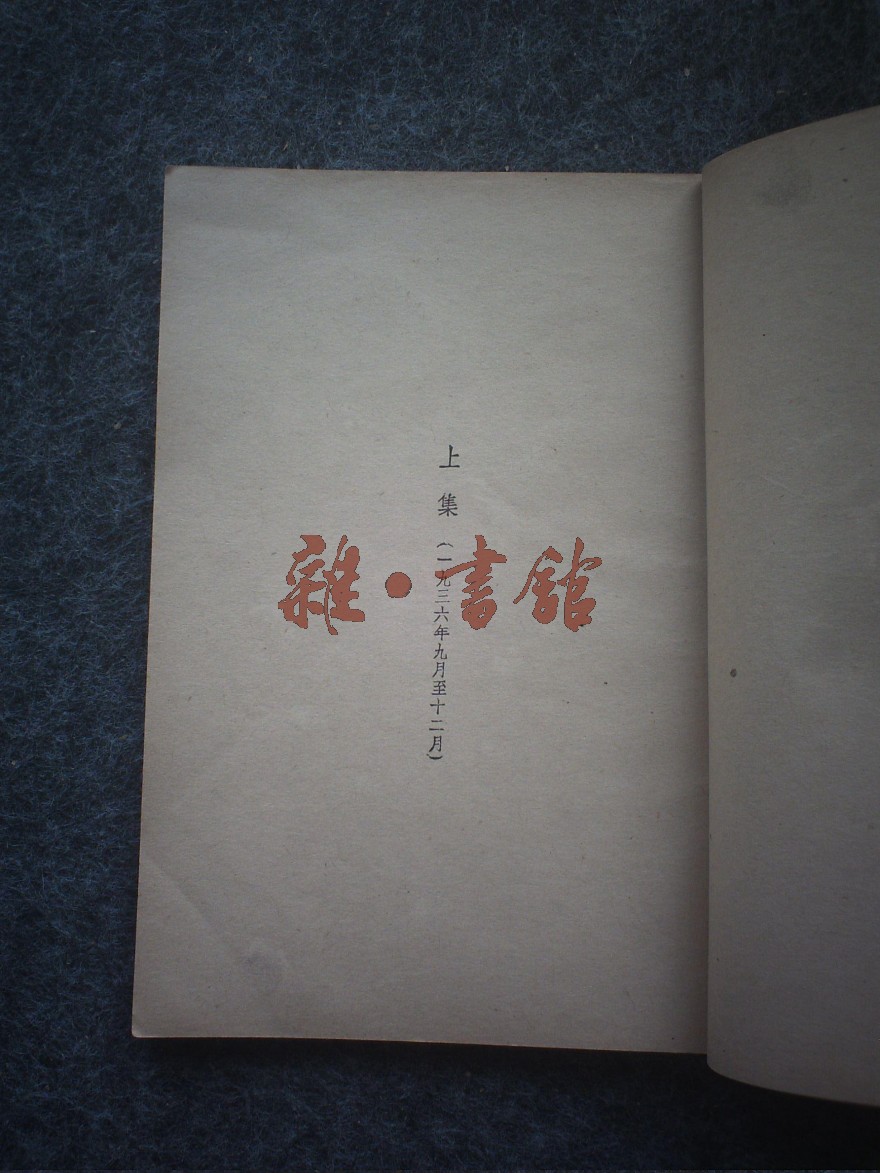 上集(一九三六年九月至十二月)
雜·書館